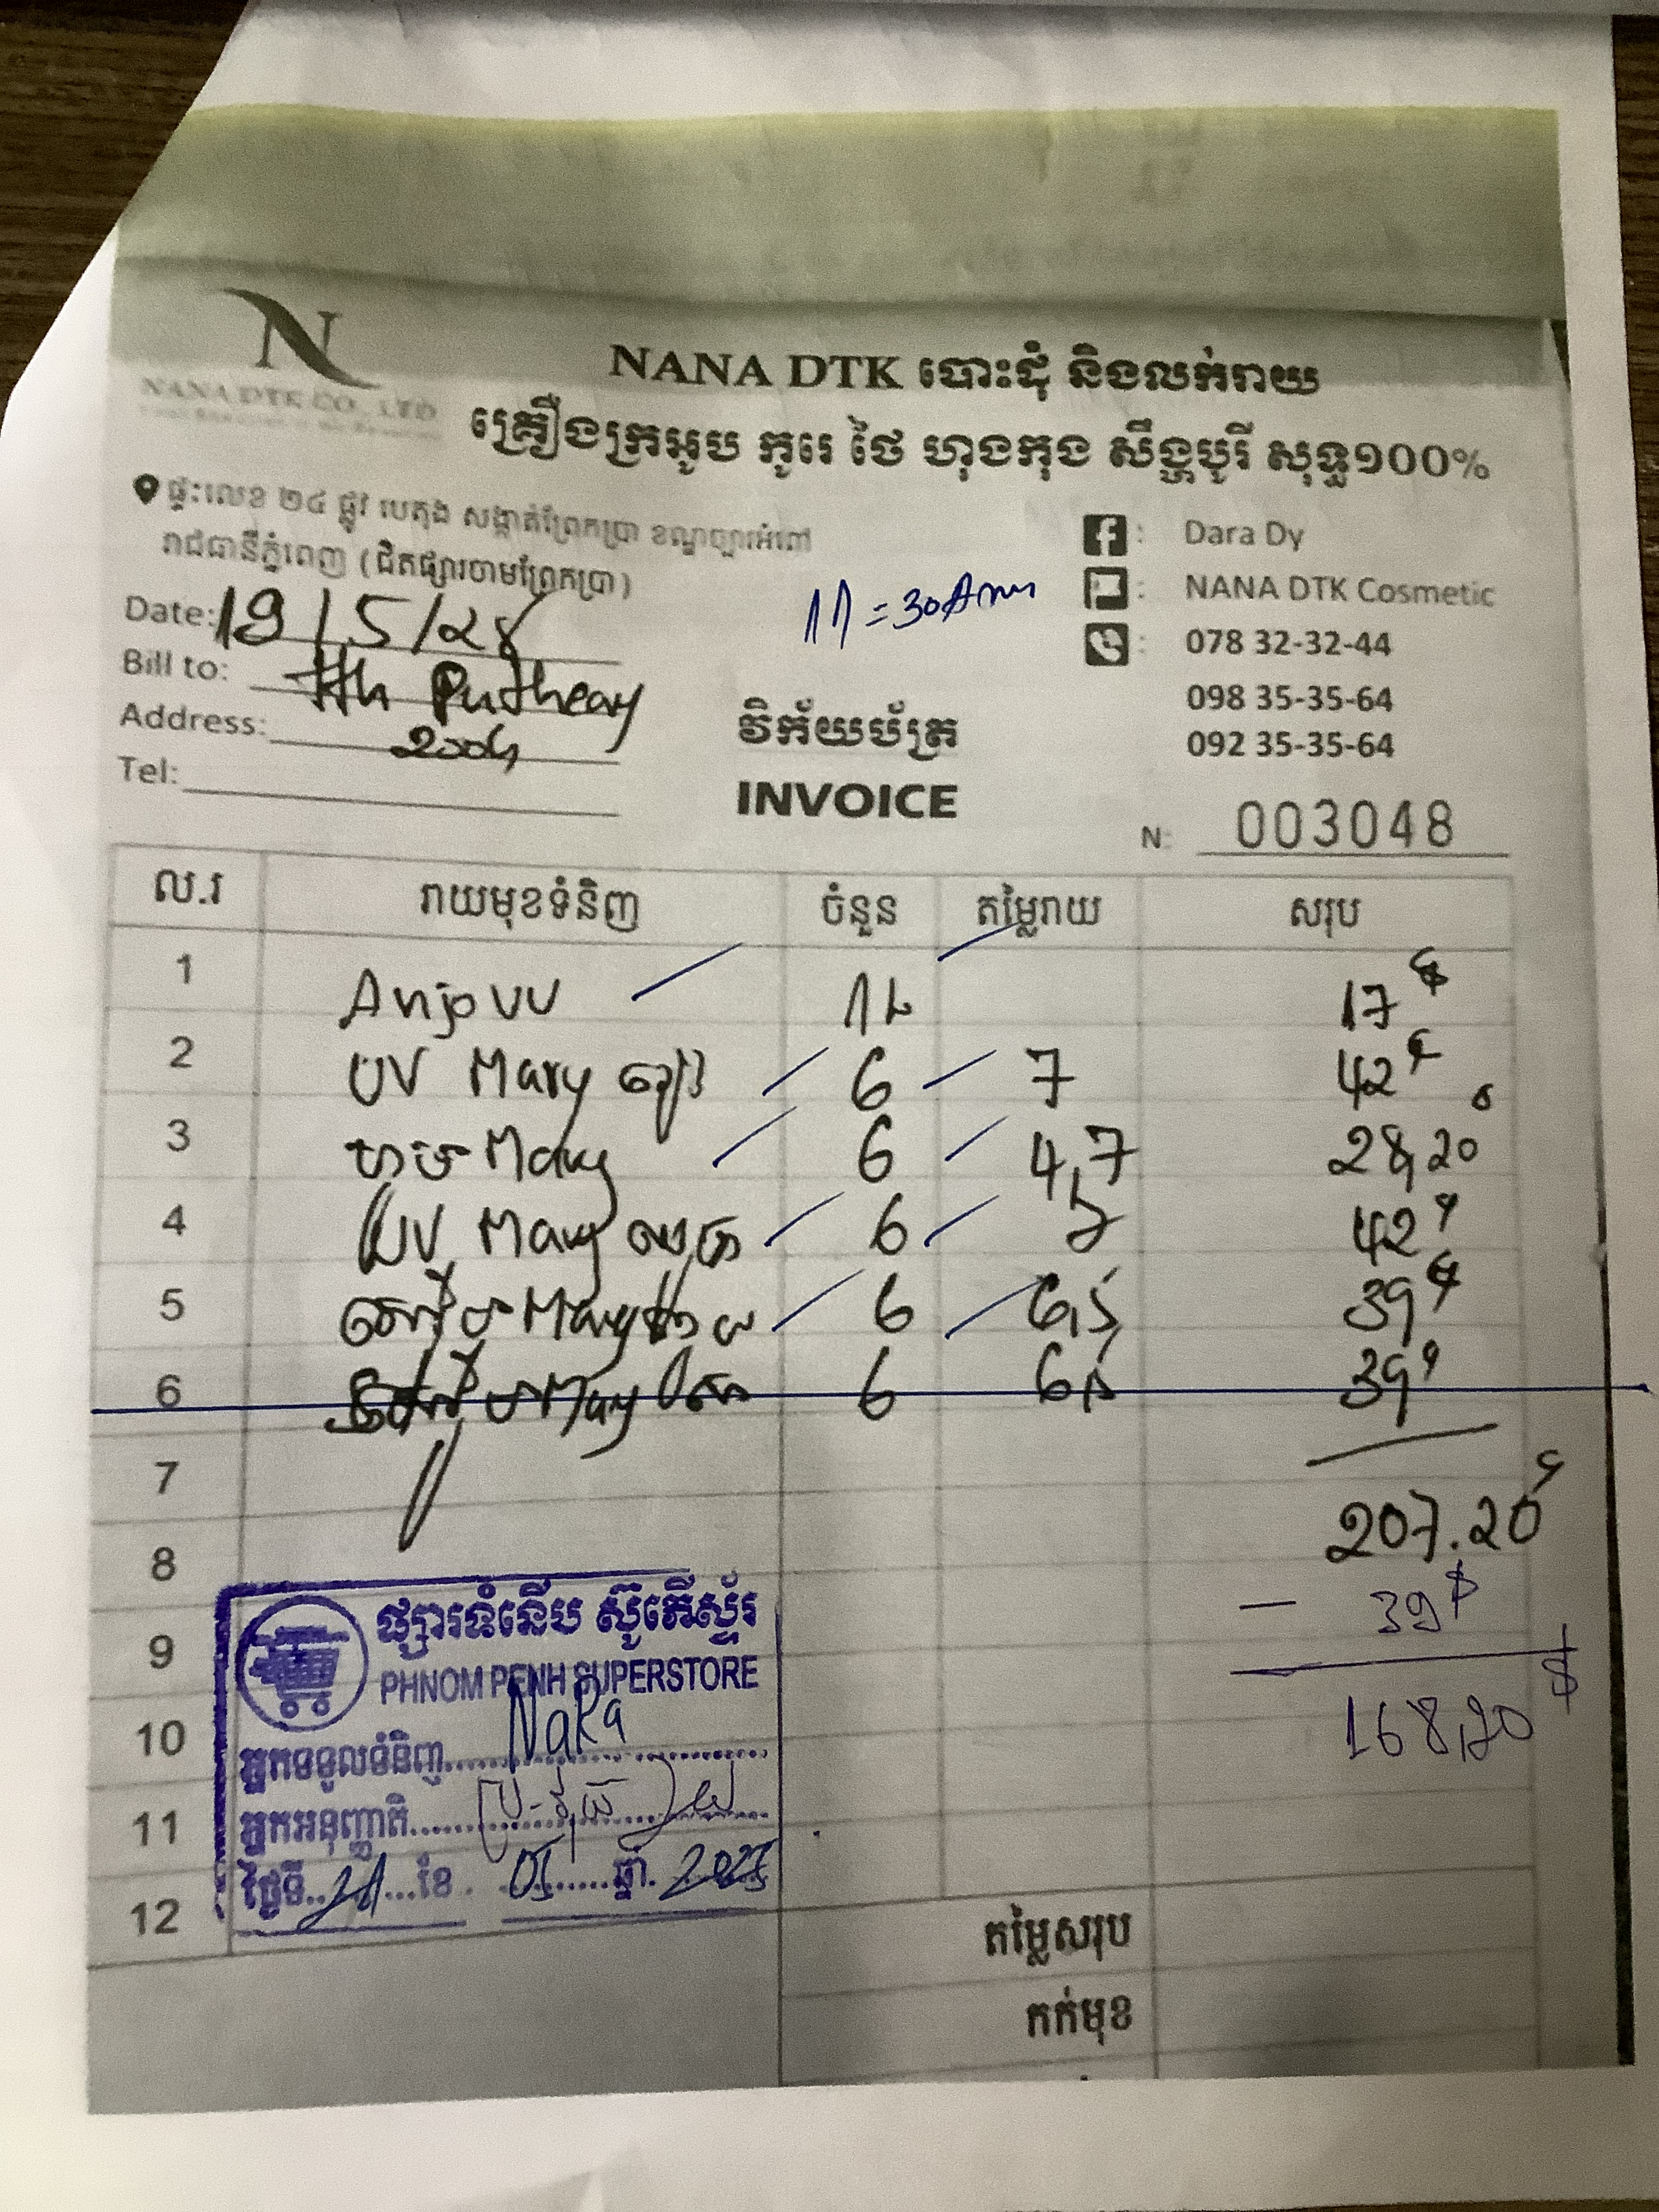 N
NANA DTK CO., LTD
NANA DTK បោះដុំ និងលក់រាយ
គ្រឿងក្រអូប កូរេ ថៃ ហុងកុង សឹង្ហបូរី សុទ្ធ១០០%
ផ្ទះលេខ ២៤ ផ្លូវ បេតុង សង្កាត់ព្រែកប្រា ខណ្ឌច្បារអំពៅ
រាជធានីភ្នំពេញ (ជិតផ្សារចាមព្រែកប្រា)
: Dara Dy
: NANA DTK Cosmetic
: 078 32-32-44
098 35-35-64
092 35-35-64
Date: 19/5/28
Bill to: Putheary
Address: 2004
Tel:
វិក័យប័ត្រ
INVOICE
N: 003048
ល.រ រាយមុខទំនិញ ចំនួន តម្លៃរាយ សរុប
1 Anjo UV 12 17$
2 UV Mary 6 7 42$
3 Mary 6 4,7 28,20
4 UV Mary 6 7 42$
5 Mary 6 6,5 39$
6 Mary 6 6,5 39$
7
207.20$
8
- 39$
9
168,20$
10
11
12
ផ្សារទំនើប ស៊ូភើស្ទ័រ
PHNOM PENH SUPERSTORE
អ្នកទទួលទំនិញ NaRa
អ្នកអនុញ្ញាតិ
ថ្ងៃទី 21 ខែ 05 ឆ្នាំ 2025
តម្លៃសរុប
កក់មុខ